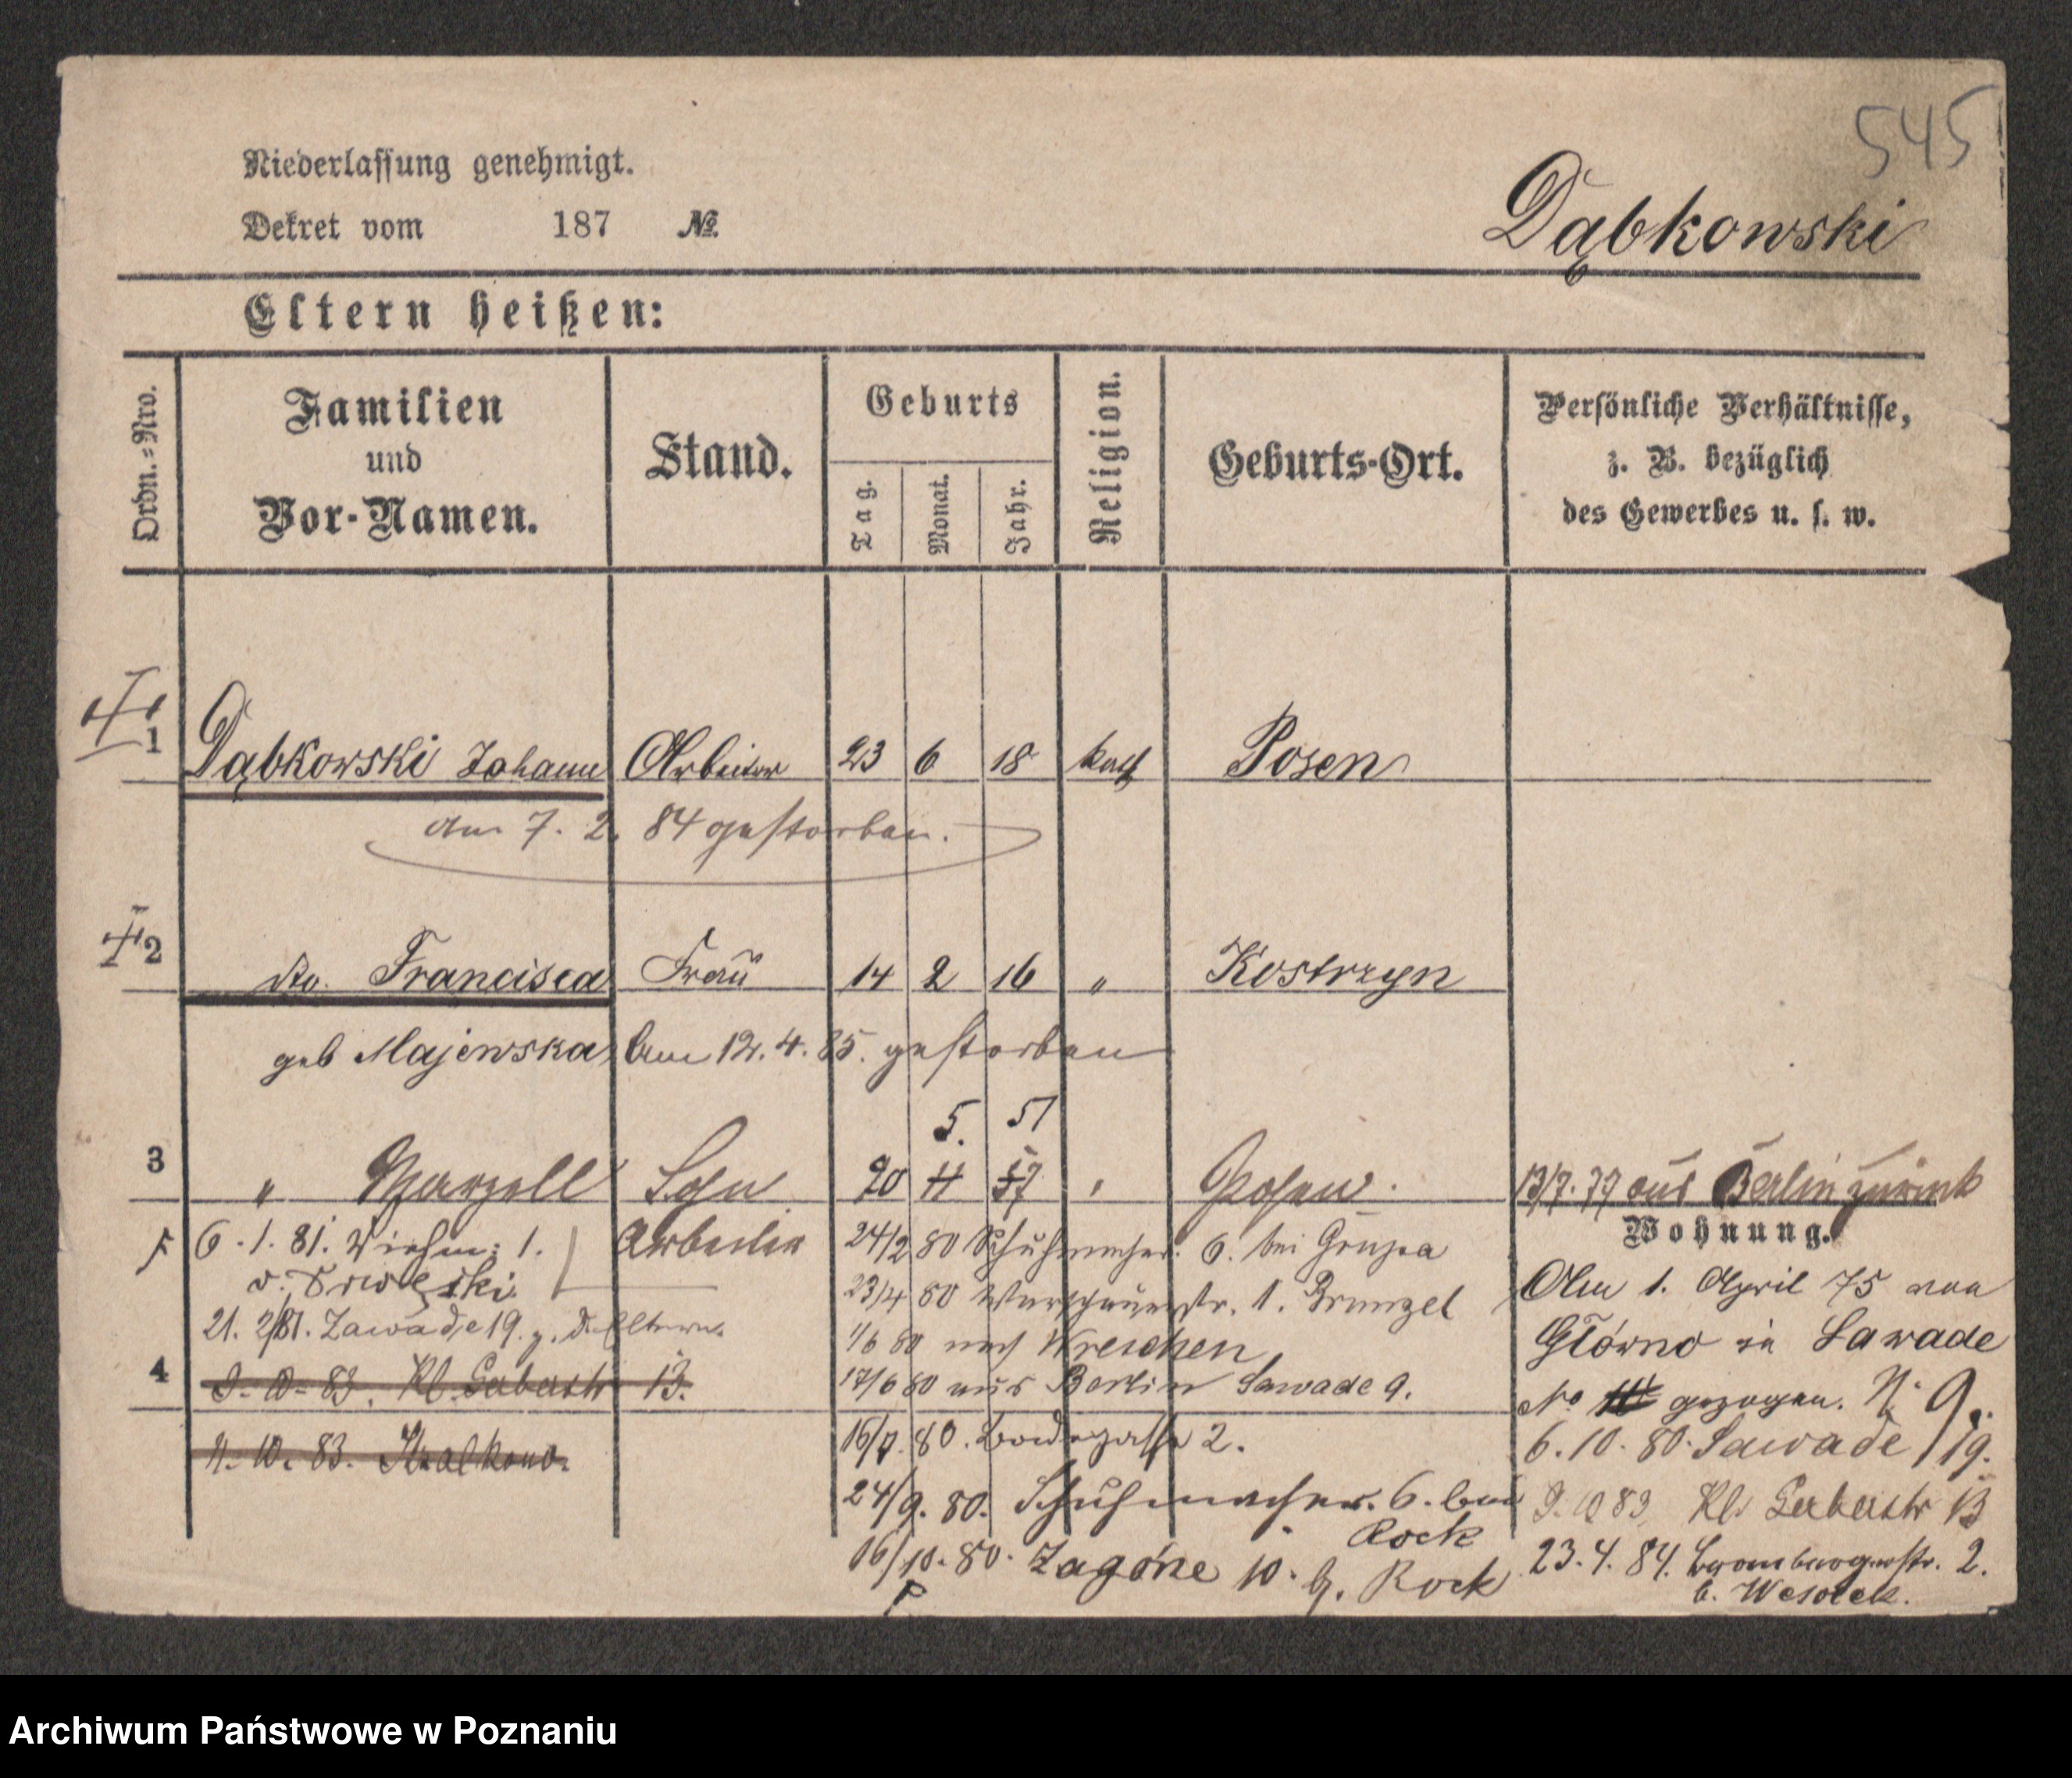 545
Niederlassung genehmigt.
Dekret vom 187 №
Dąbkowski
Eltern heißen:
Ordn.=Nro.
Familien und Vor-Namen.
Stand.
Geburts
Tag. Monat. Jahr.
Religion.
Geburts-Ort.
Persönliche Verhältnisse,
z. B. bezüglich
des Gewerbes u. s. w.
1 Dąbkowski Johann Arbeiter 23 6 18 kath Posen
Am 7. 2. 84 gestorben.
2 do. Francisca Frau 14 2 16 " Kostrzyn
geb Majewska Am 12. 4. 85. gestorben
5. 51
3 " Marzell Sohn 20 11 57 " Posen. 13/7. 79 aus Berlin zurück
Wohnung.
6. 1. 81. 1. Arbeiter 24/2 80 Schuhmacher. 6. bei Gruzca
23/4 80 Warschauerstr. 1.
21. 2/81. Zawade 19. z. d. Eltern.
1/6 80 nach Wreschen
17/6 80 aus Berlin Sawade 9.
4 9. 10. 83. Kl. Gerberstr 13.
16/7. 80. 2.
11. 10. 83.
24/9. 80. Schuhmacher. 6. bei
Rock
16/10. 80. Zagórze 10. b. Rock
Am 1. April 75 von
Główno in Sawade
No gezogen. N. 9.
6. 10. 80. Sawade 19.
9. 10 83 Kl. Gerberstr 13
23. 4. 84. Brombergerstr. 2.
b. Wesolek.
Archiwum Państwowe w Poznaniu